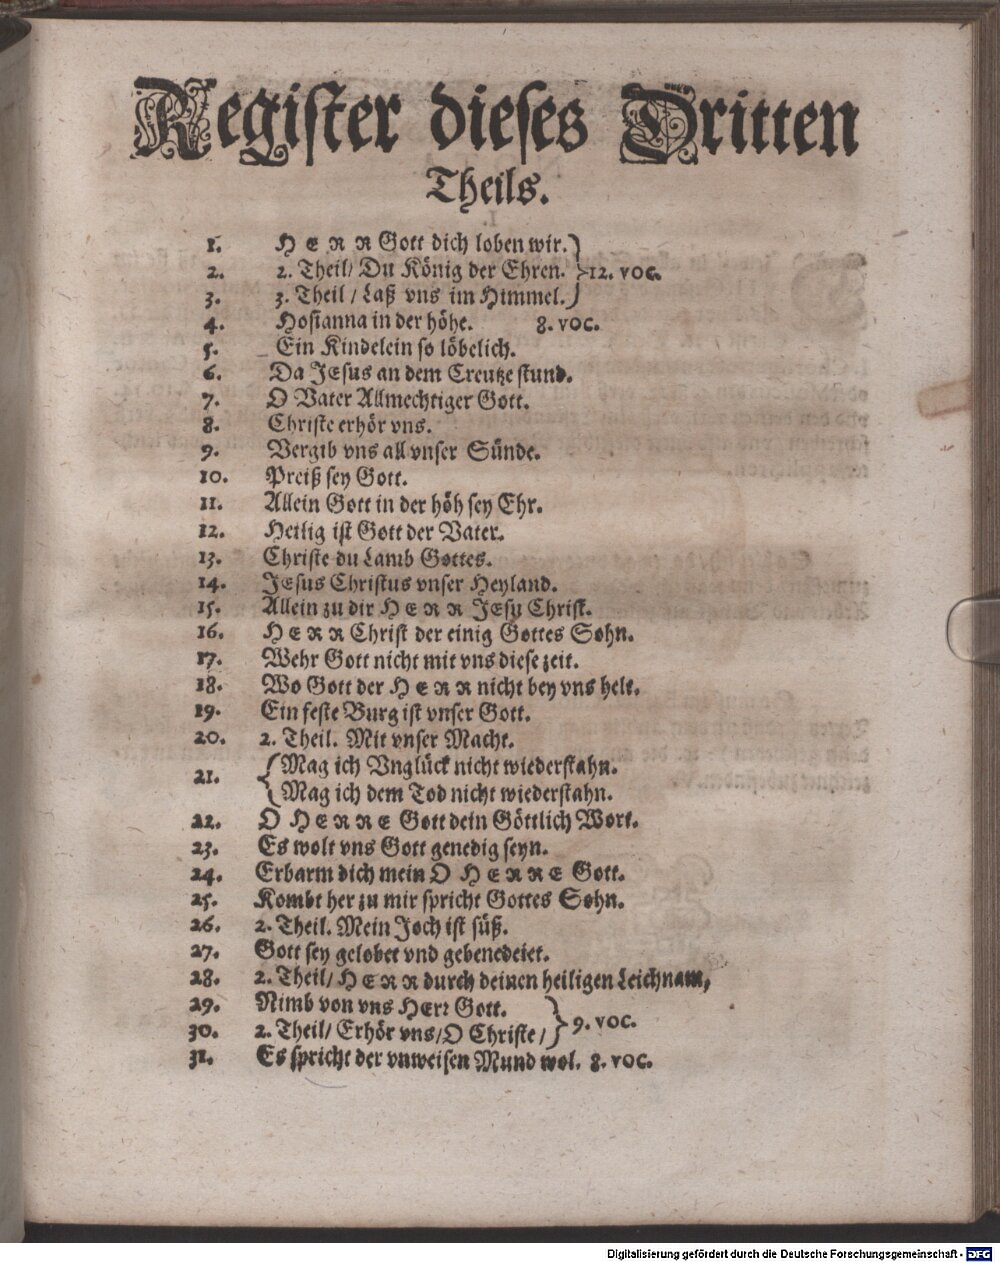 Register dieses Dritten
Theils.
1. HERR Gott dich loben wir.
2. 2. Theil/ Du König der Ehren. 12. voc.
3. 3. Theil / Laß vns im Himmel.
4. Hosianna in der höhe. 8. voc.
5. Ein Kindelein so löbelich.
6. Da JEsus an dem Creutze stund.
7. O Vater Allmechtiger Gott.
8. Christe erhör vns.
9. Vergib vns all vnser Sünde.
10. Preiß sey Gott.
11. Allein Gott in der höh sey Ehr.
12. Heilig ist Gott der Vater.
13. Christe du Lamb Gottes.
14. JEsus Christus vnser Heyland.
15. Allein zu dir HERR JEsu Christ.
16. HERR Christ der einig Gottes Sohn.
17. Wehr Gott nicht mit vns diese zeit.
18. Wo Gott der HERR nicht bey vns helt.
19. Ein feste Burg ist vnser Gott.
20. 2. Theil. Mit vnser Macht.
21. Mag ich Vnglück nicht wiederstahn.
Mag ich dem Tod nicht wiederstahn.
22. O HERRE Gott dein Göttlich Wort.
23. Es wolt vns Gott genedig seyn.
24. Erbarm dich mein O HERRE Gott.
25. Kombt her zu mir spricht Gottes Sohn.
26. 2. Theil. Mein Joch ist süß.
27. Gott sey gelobet vnd gebenedeiet.
28. 2. Theil/ HERR durch deinen heiligen Leichnam,
29. Nimb von vns HErr Gott.
30. 2. Theil/ Erhör vns/O Christe/ 9. voc.
31. Es spricht der vnweisen Mund wol. 8. voc.
Digitalisierung gefördert durch die Deutsche Forschungsgemeinschaft - DFG